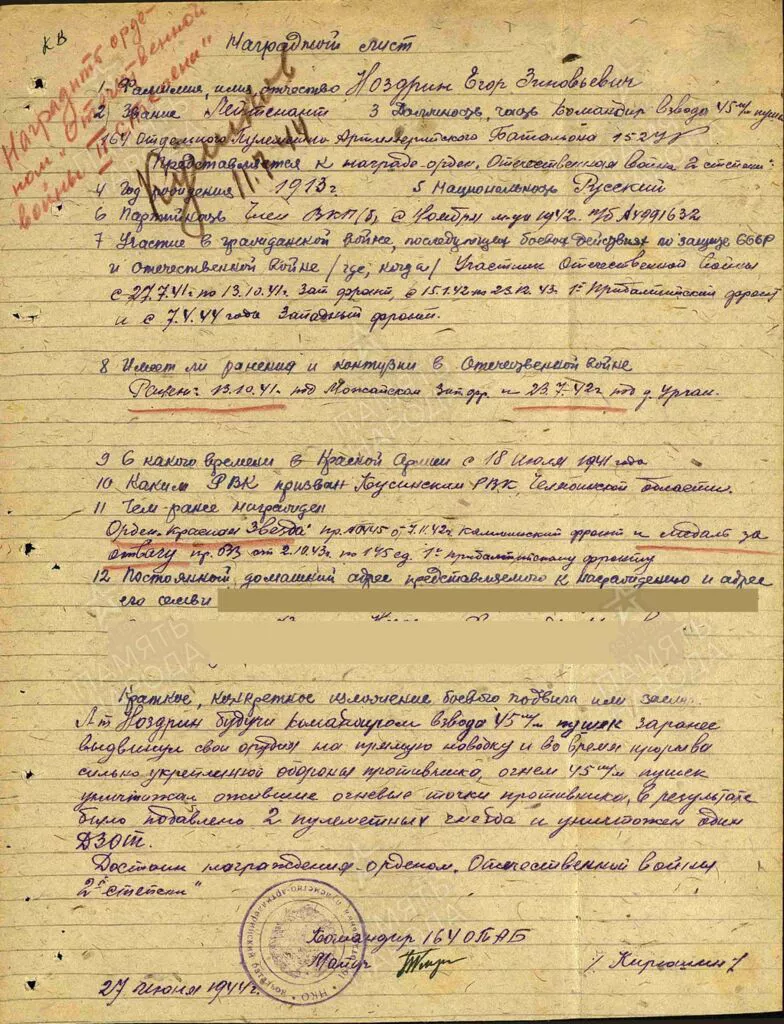 КВ
Наградить орде-
ном "Отечественной
войны II степени"
11.7.44
Наградной лист
1 Фамилия, имя, отчество Ноздрин Егор Зиновьевич
2 Звание Лейтенант 3 Должность, часть Командир взвода 45 м/м пушек
164 Отдельного Пулеметно Артиллерийского Батальона 152 УР
Представляется к награде-орден. Отечественная война 2 степени.
4 Год рождения 1913 г 5 Национальность Русский
6 Партийность Член ВКП(б) с Ноября м-ца 1942. п/б № 4991632
7 Участие в гражданской войне, последующих боевых действиях по защите СССР
и отечественной войне /где, когда/ Участник Отечественной войны
с 27.7.41 г по 13.10.41 г. Зап фронт, с 15.1.42 по 23.12.43. 1й Прибалтийский фронт
и с 7.4.44 года Западный фронт.
8 Имеет ли ранения и контузии в Отечественной войне
Ранен: 13.10.41 г. под Можайском Зап фр. и 23.7.42 г под д. Урган.
9 С какого времени в Красной Армии с 18 Июля 1941 года
10 Каким РВК призван Кусинским РВК, Челябинской области.
11 Чем-ранее награжден
Орден "Красная Звезда" пр. от 7.11.42 г. Калининский фронт и медаль за
отвагу пр. от 2.10.43 г. по 145 сд. 1го Прибалтийскому фронту
12 Постоянный домашний адрес представляемого к награждению и адрес
его семьи
Краткое, конкретное изложение боевого подвига или
Л-т Ноздрин будучи командиром взвода 45 м/м пушек заранее
выдвинул свои орудия на прямую наводку и во время прорыва
сильно укрепленной обороны противника, огнем 45 м/м пушек
уничтожал ожившие огневые точки противника, в результате
было подавлено 2 пулеметных гнезда и уничтожен один
ДЗОТ.
Достоин награждения-орденом. Отечественной войны
2й степени"
Командир 164 ОПАБ
Майор / Кирюшин /
27 июня 1944 г.
НКО
ПАМЯТЬ НАРОДА